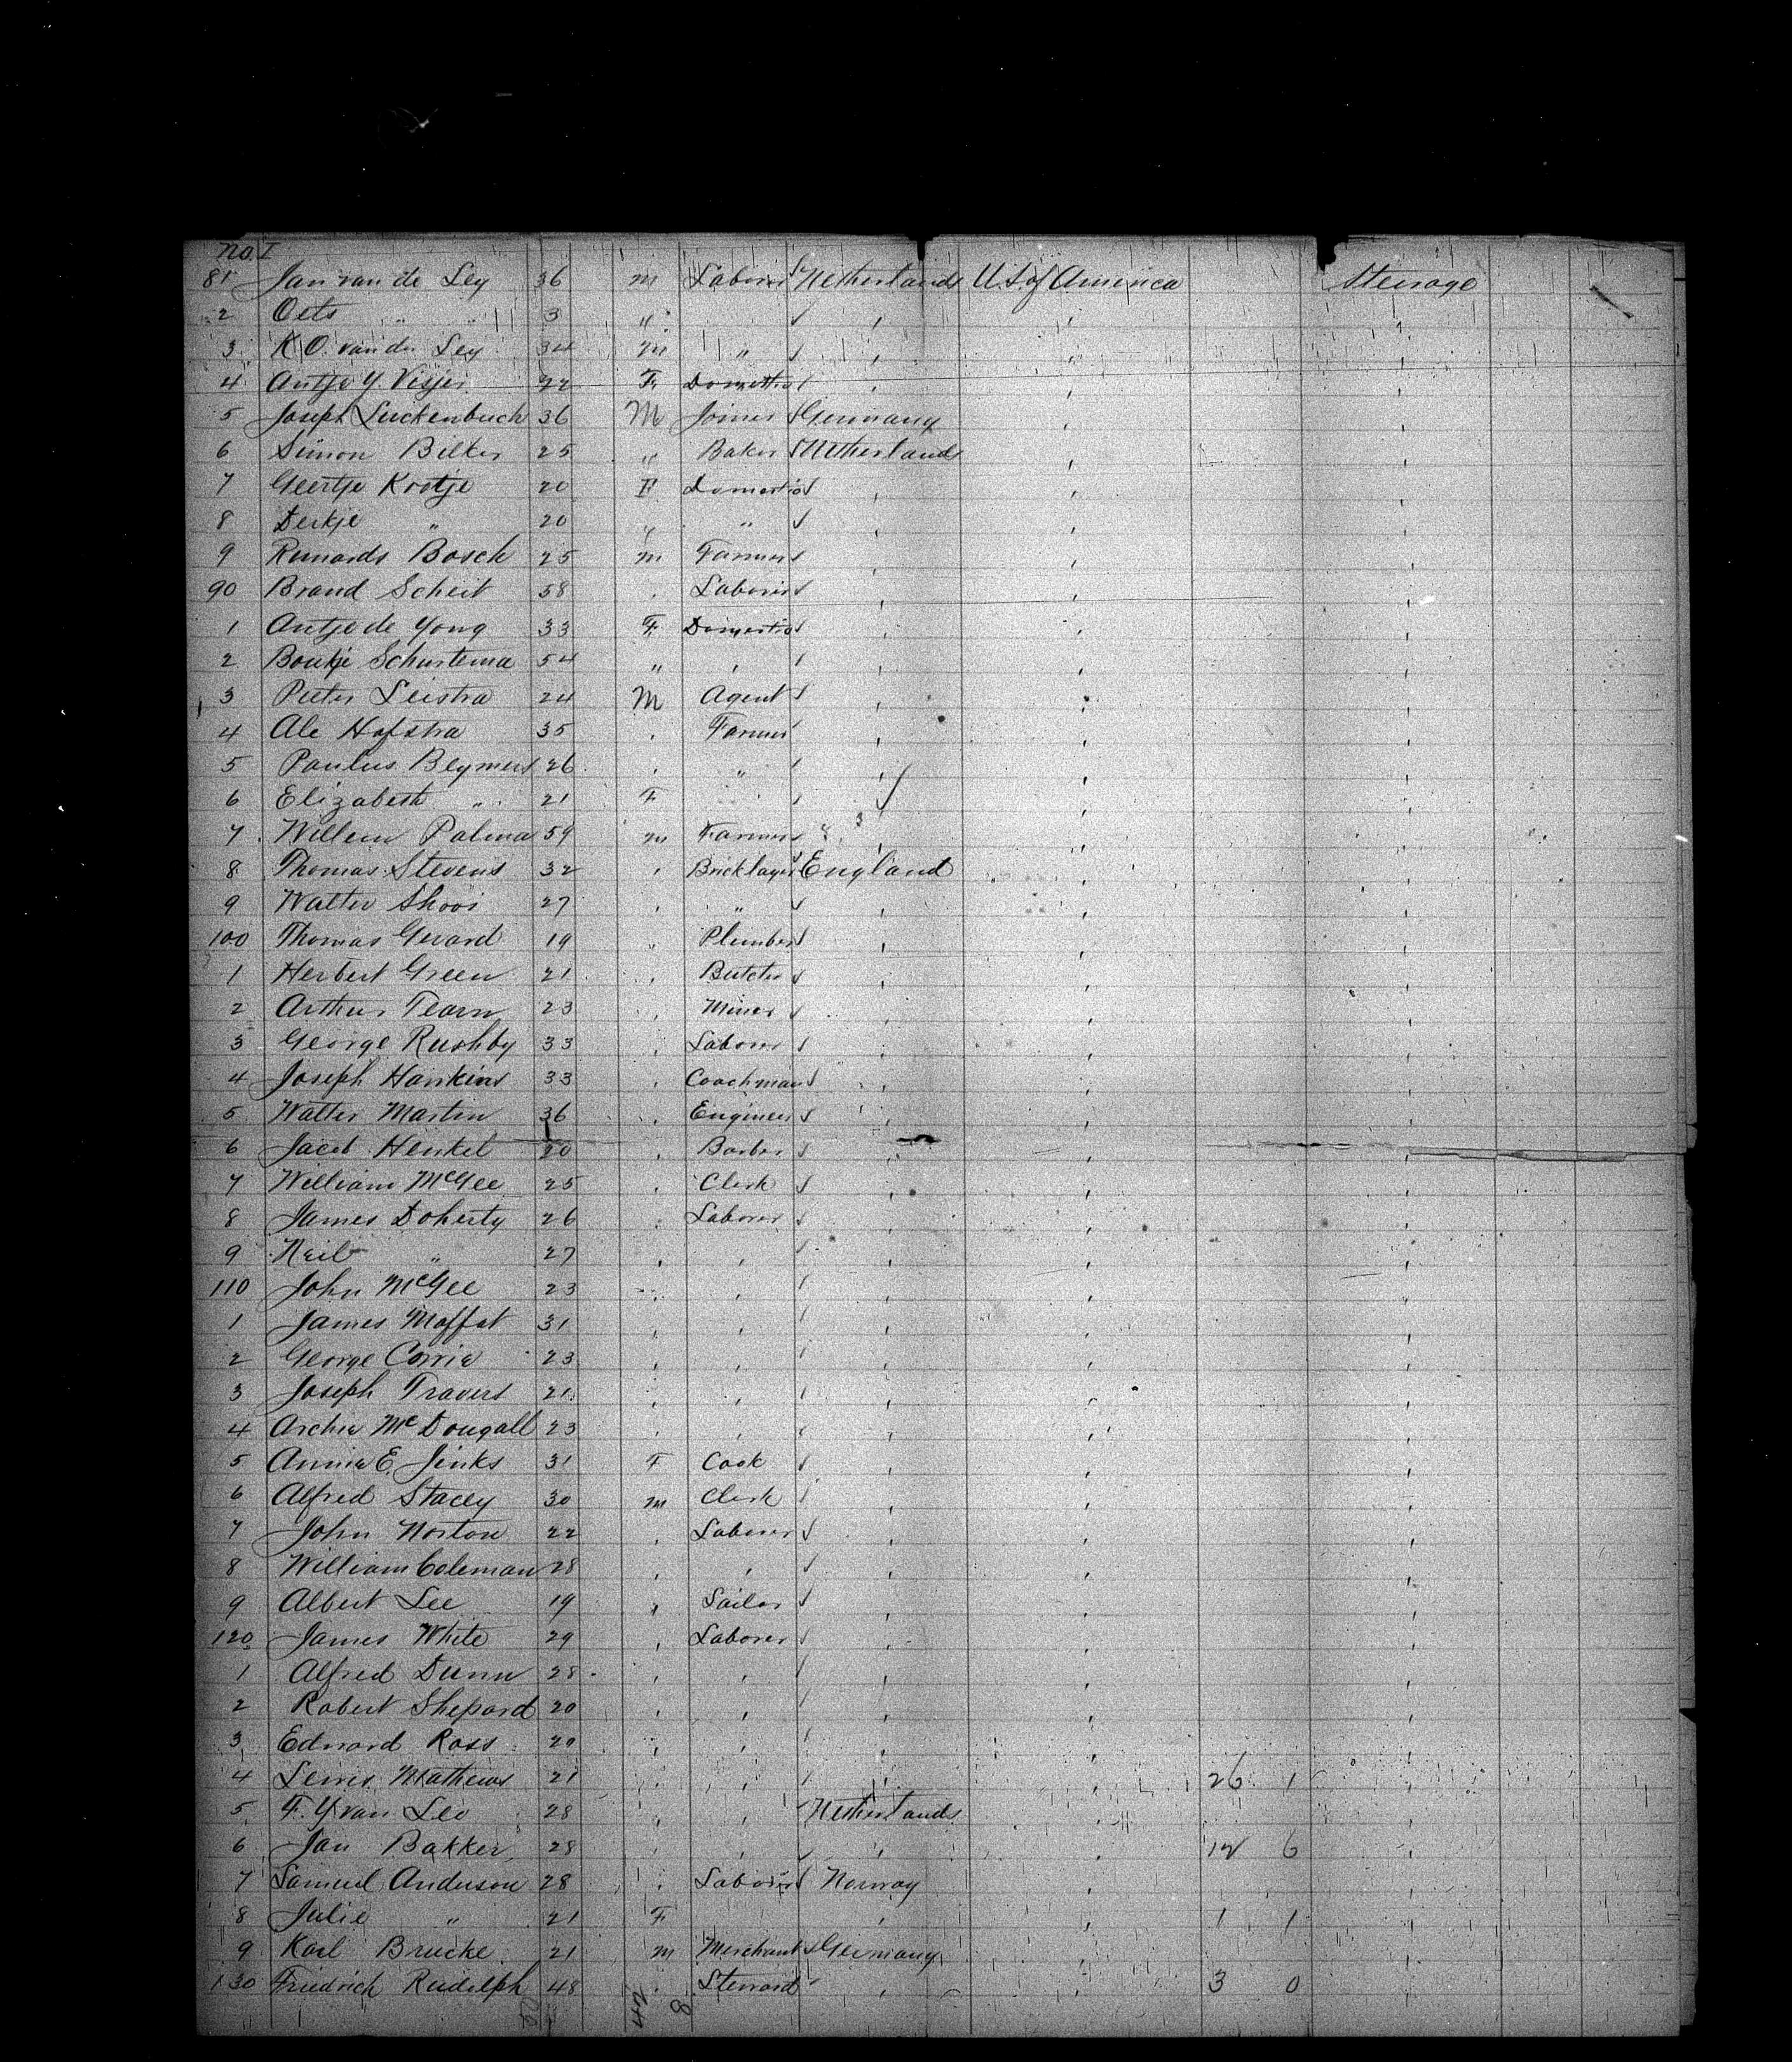 No. I
81 Jan van de Ley 36 m Laborer Netherlands U.S. of America Steerage
2 Oets " " 3 "
3 K O. van der Ley 34 m "
4 Antje Y. Visjer 22 F. Domestic
5 Joseph Luckenbuch 36 M Joiner Germany
6 Simon Bilker 25 " Baker Netherlands
7 Geertje Krotje 20 F Domestic
8 Derkje " 20 " "
9 Remards Bosch 25 m Farmer
90 Brand Scheit 58 Laborer
1 Antje de Yong 33 F. Domestic
2 Boukje Schurtema 54 "
3 Pieter Leistra 24 M Agent
4 Ale Hofstra 35 Farmer
5 Paulus Beymers 26 "
6 Elizabeth " 21 F
7 Willem Palma 59 m Farmer 8 3
8 Thomas Stevens 32 Bricklayer England
9 Walter Shoos 27 "
100 Thomas Gerard 19 Plumber
1 Herbert Green 21 Butcher
2 Arthur Tearn 23 Miner
3 George Rushby 33 Laborer
4 Joseph Hankins 33 Coachman
5 Walter Martin 36 Engineer
6 Jacob Henkel 20 Barber
7 William McGee 25 Clerk
8 James Doherty 26 Laborer
9 Neil " 27
110 John McGee 23
1 James Moffat 31
2 George Corrie 23
3 Joseph Travers 21
4 Archie McDougall 23
5 Annie E. Jinks 31 F Cook
6 Alfred Stacey 30 m Clerk
7 John Norton 22 Laborer
8 William Coleman 28
9 Albert Lee 19 Sailor
120 James White 29 Laborer
1 Alfred Dunn 28
2 Robert Shepard 20
3 Edward Ross 29
4 Lewis Mathews 21 26 1
5 F. Y. van Leo 28 Netherlands
6 Jan Bakker 28 12 6
7 Samuel Anderson 28 Laborer Norway
8 Julie " 21 F 1 1
9 Karl Brucke 21 m Merchant Germany
130 Friedrich Rudolph 48 Steward 3 0